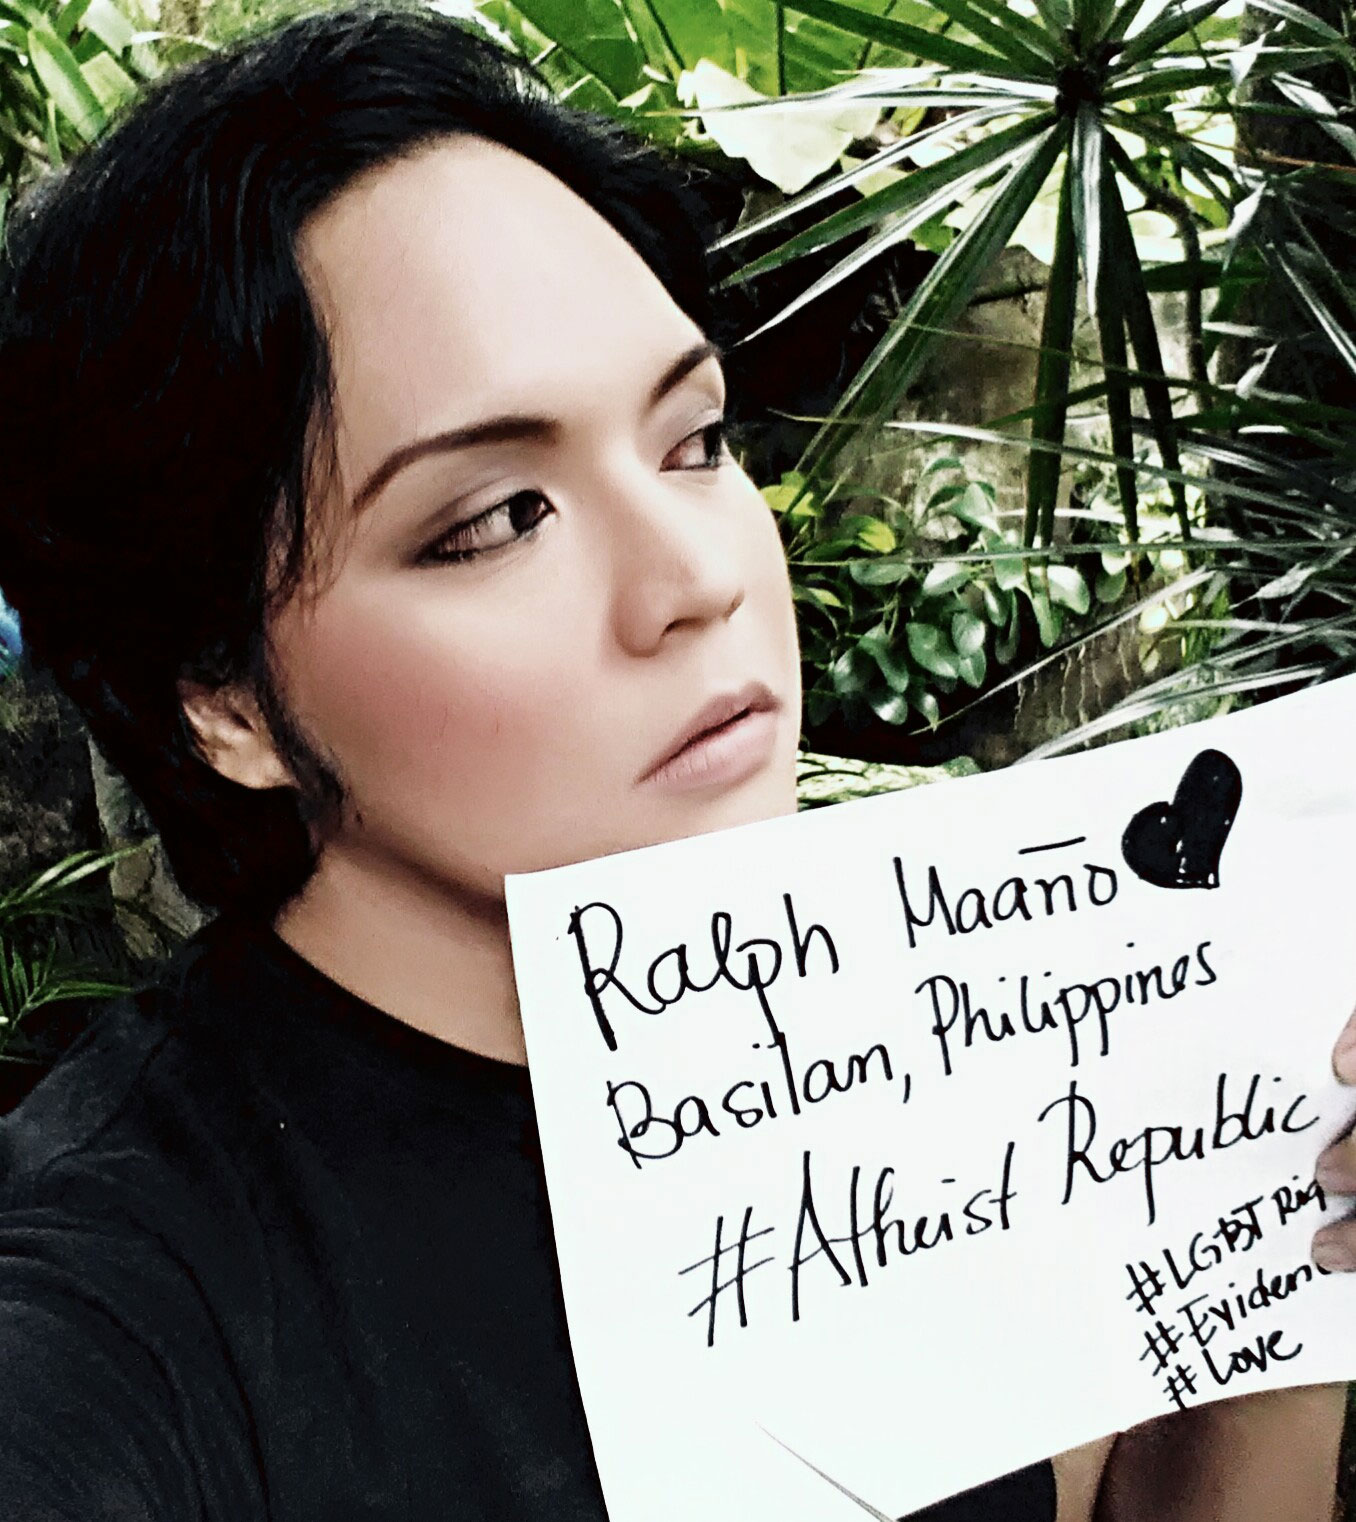 Ralph Maaño
Basilan, Philippines
#Atheist Republic
#LGBT Rig
#Eviden
#Love